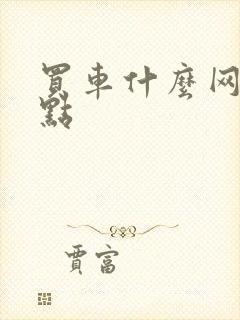 買車什麼网
點
賈富